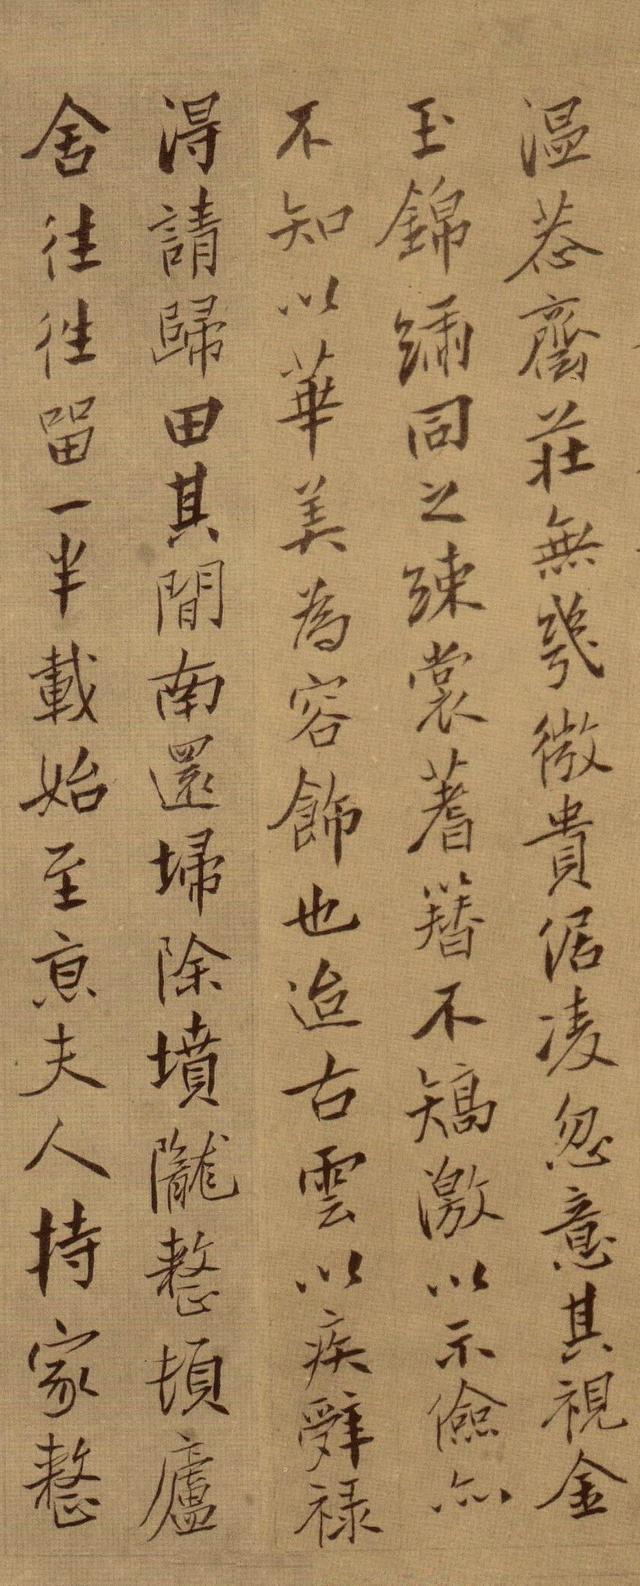 温恭齋莊無幾微貴倨凌忽意其視金
玉錦繡同之練裳蓍簪不矯激以示儉亦
不知以華美為容飾也迨古雲以疾辭祿
得請歸田其間南還埽除墳隴整頓廬
舍往往留一半載始至京夫人持家整